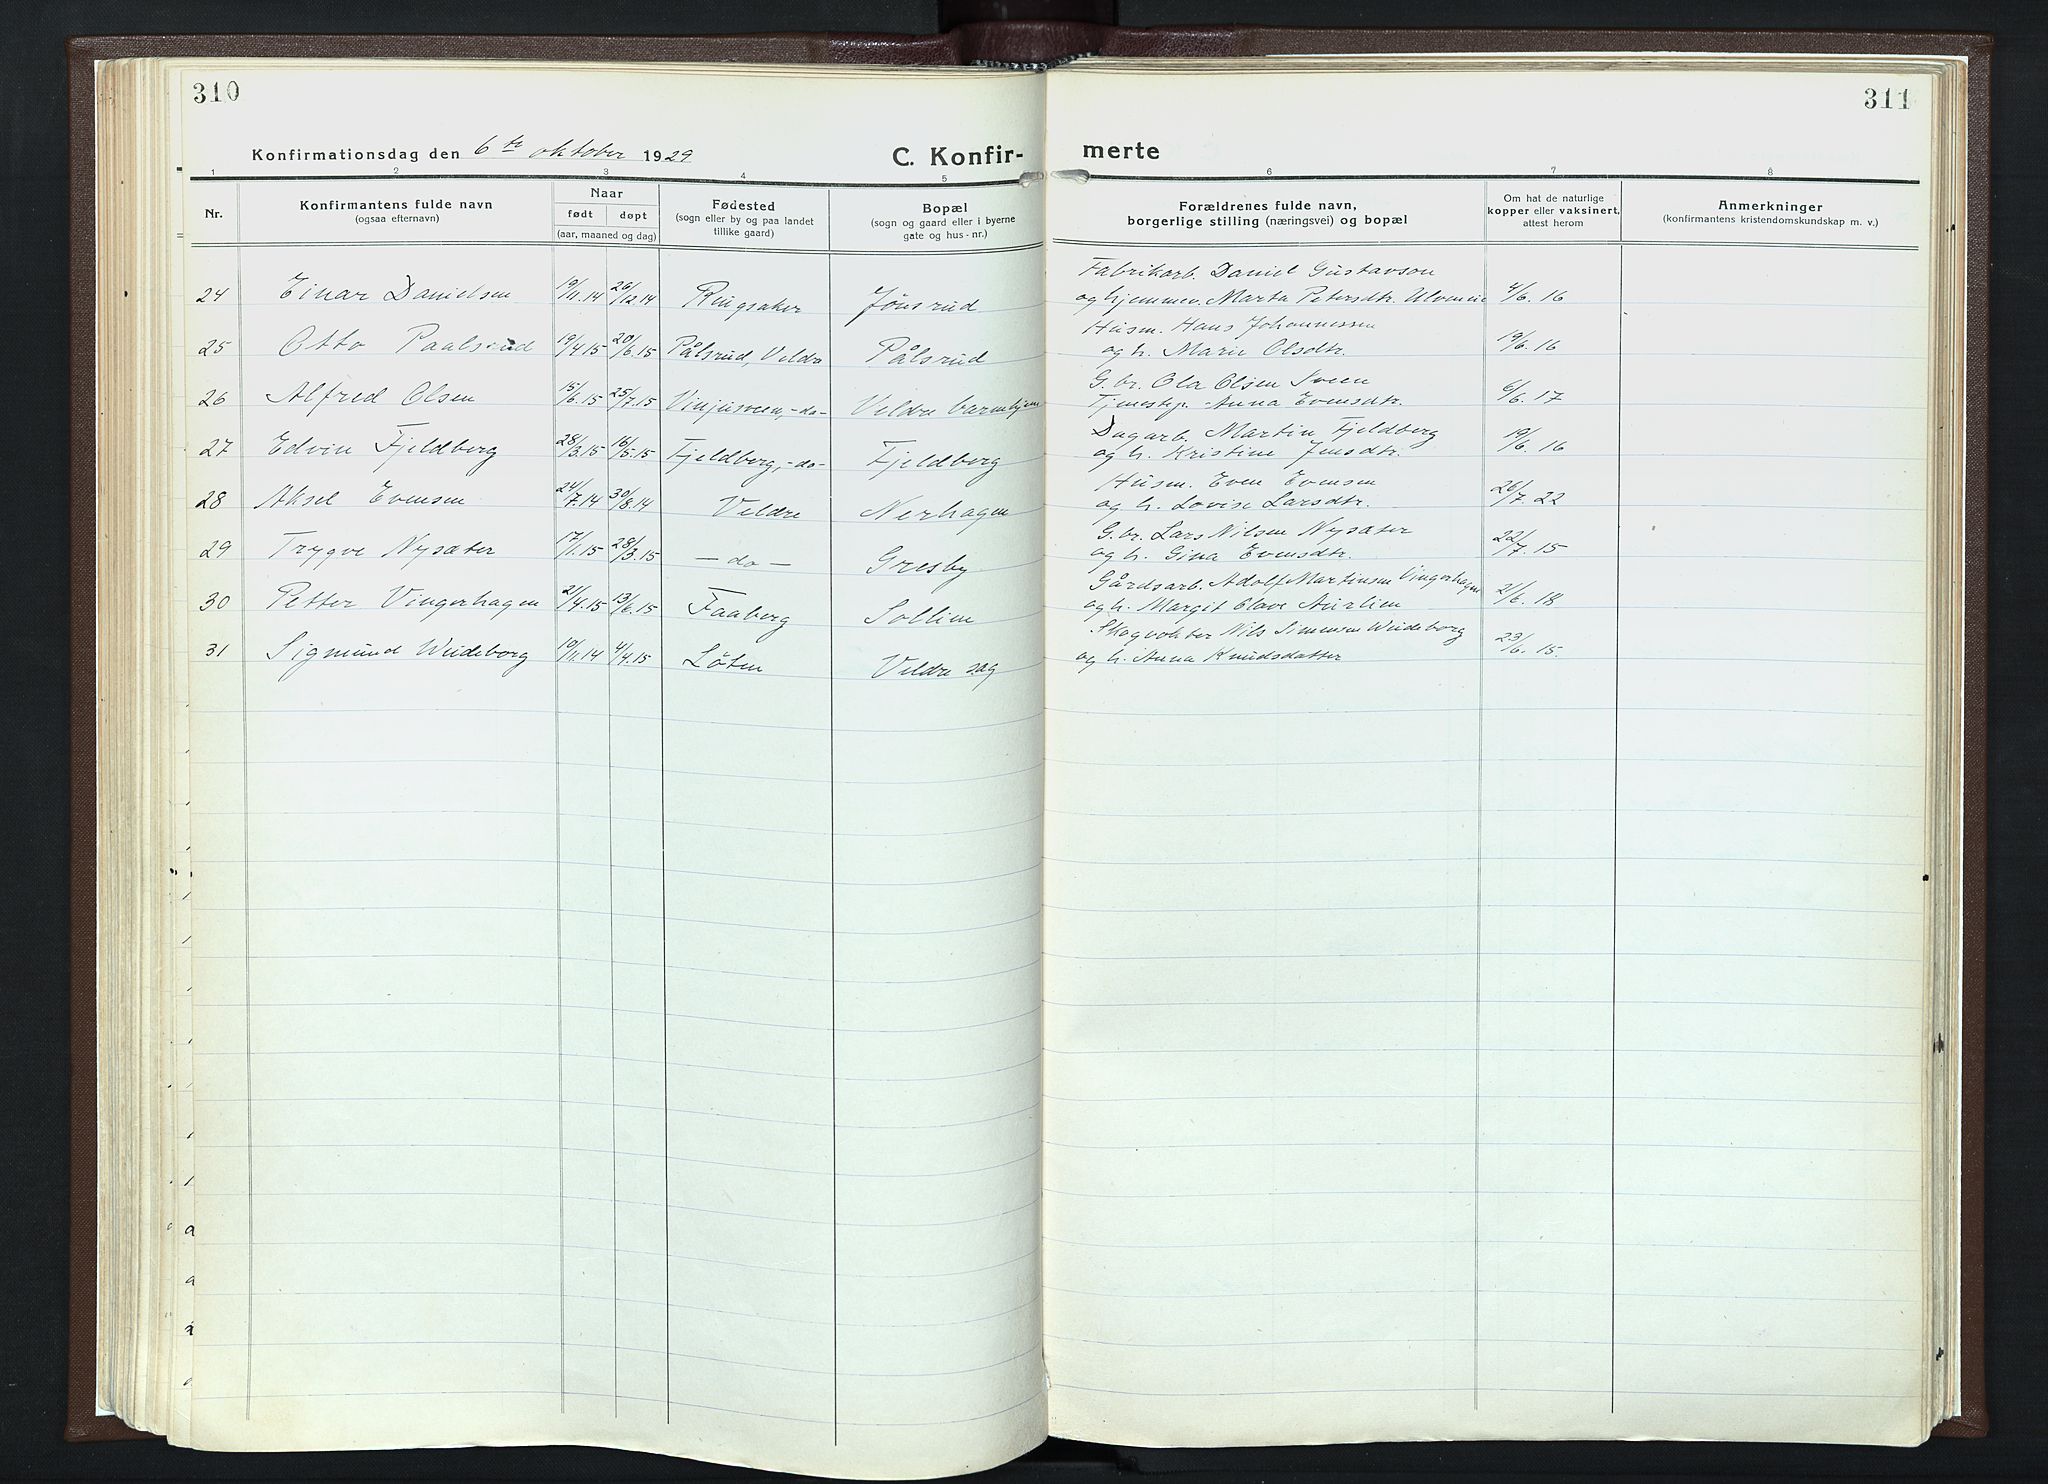 310
311
Konfirmationsdag den 6te oktober 1929
C. Konfir-
merte
1 2 3 4 5 6 7 8
Nr.
Konfirmantens fulde navn
(ogsaa efternavn)
Naar
født døpt
(aar, maaned og dag)
Fødested
(sogn eller by og paa landet
tillike gaard)
Bopæl
(sogn og gaard eller i byerne
gate og hus-nr.)
Forældrenes fulde navn,
borgerlige stilling (næringsvei) og bopæl
Om hat de naturlige
kopper eller vaksinert,
attest herom
Anmerkninger
(konfirmantens kristendomskundskap m. v.)
Fabrikarb. Daniel Gustavson
24 Einar Danielsen 19/11.14 26/12.14 Ringsaker Jönsrud og hjemmev. Marta Petersdtr. Ulvenie 4/6. 16
Husm. Hans Johannessen
25 Otto Paalsrud 19/4.15 20/6.15 Pålsrud, Veldre Pålsrud og h. Marie Olsdtr. 19/6. 16
G. br. Ola Olsen Sveen
26 Alfred Olsen 15/6.15 25/7.15 Vinjusveen, -do- Veldre barnehjem Tjenestep. Anna Evensdtr. 6/6. 17
Dagarb. Martin Fjeldberg
27 Edvin Fjeldberg 28/3.15 16/5.15 Fjeldberg, -do- Fjeldberg og h. Kristine Jensdtr. 19/6. 16
Husm. Even Evensen
28 Aksel Evensen 24/7.14 30/8.14 Veldre Nerhagen og h. Lovise Larsdtr. 26/7. 22
G. br. Lars Nilsen Nysæter
29 Trygve Nysæter 17/1.15 28/3.15 — do — Gresby og h. Gina Evensdtr. 22/7. 15
Gårdsarb. Adolf Martinsen Vingerhagen
30 Petter Vingerhagen 21/4.15 13/6.15 Faaberg Sollien og h. Margit Olave Aurlien 21/6. 18
Skogvokter Nils Simensen Weideborg
31 Sigmund Weideborg 10/11.14 4/4.15 Löten Veldre sag og h. Anna Knudsdatter 23/6. 15.